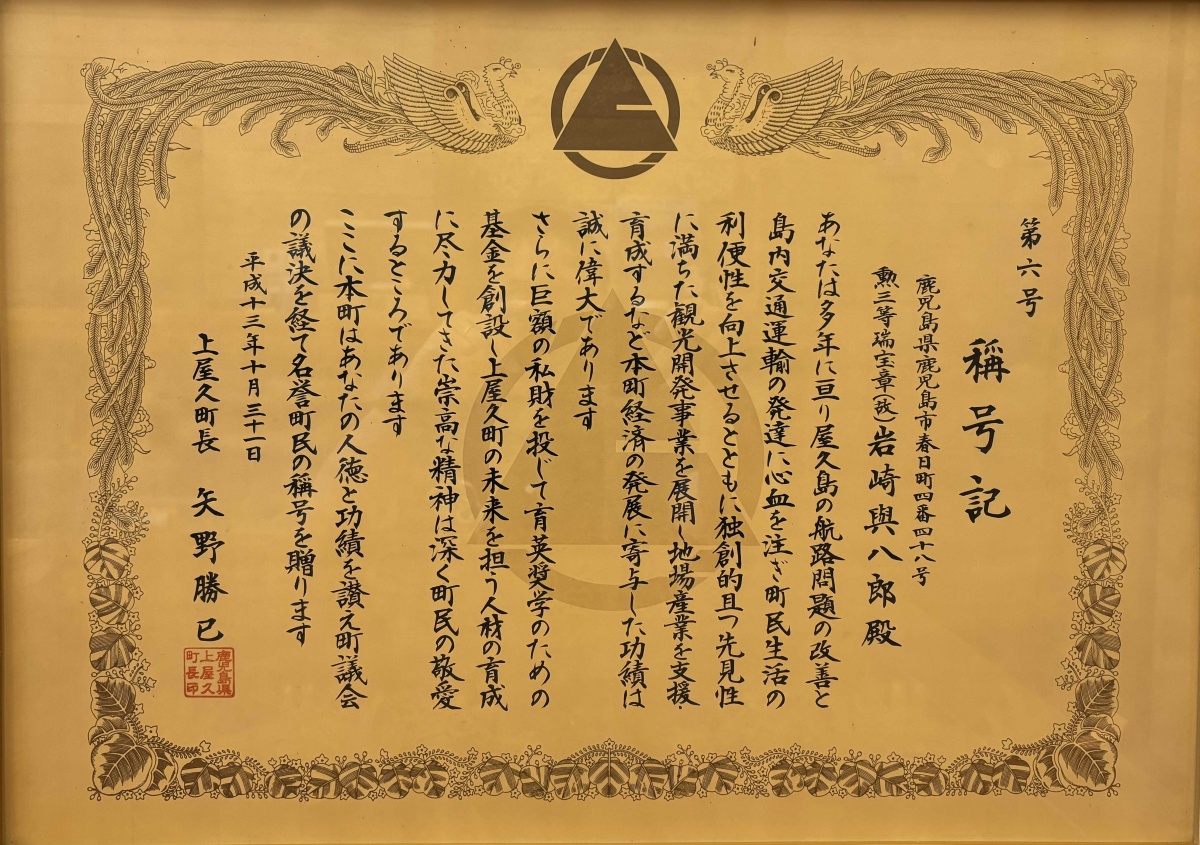 第六号
稱号記
鹿児島県鹿児島市春日町四番四十八号
勲三等瑞宝章(故)岩崎與八郎殿
あなたは多年に亘り屋久島の航路問題の改善と
島内交通運輸の発達に心血を注ぎ町民生活の
利便性を向上させるとともに独創的且つ先見性
に満ちた観光開発事業を展開し地場産業を支援・
育成するなど本町経済の発展に寄与した功績は
誠に偉大であります
さらに巨額の私財を投じて育英奨学のための
基金を創設し上屋久町の未来を担う人材の育成
に尽力してきた崇高な精神は深く町民の敬愛
するところであります
ここに本町はあなたの人徳と功績を讃え町議会
の議決を経て名誉町民の稱号を贈ります
平成十三年十月三十一日
上屋久町長 矢野勝巳
鹿児島県
上屋久
町長印